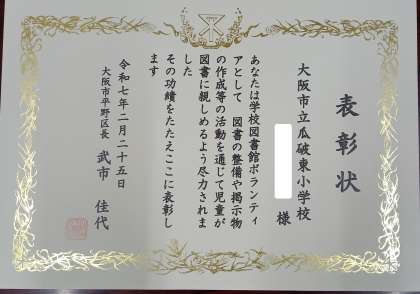 表彰状
大阪市立瓜破東小学校
様
あなたは学校図書館ボランティ
アとして 図書の整備や掲示物
の作成等の活動を通じて児童が
図書に親しめるよう尽力されま
した
その功績をたたえここに表彰し
ます
令和七年二月二十五日
大阪市平野区長 武市 佳代